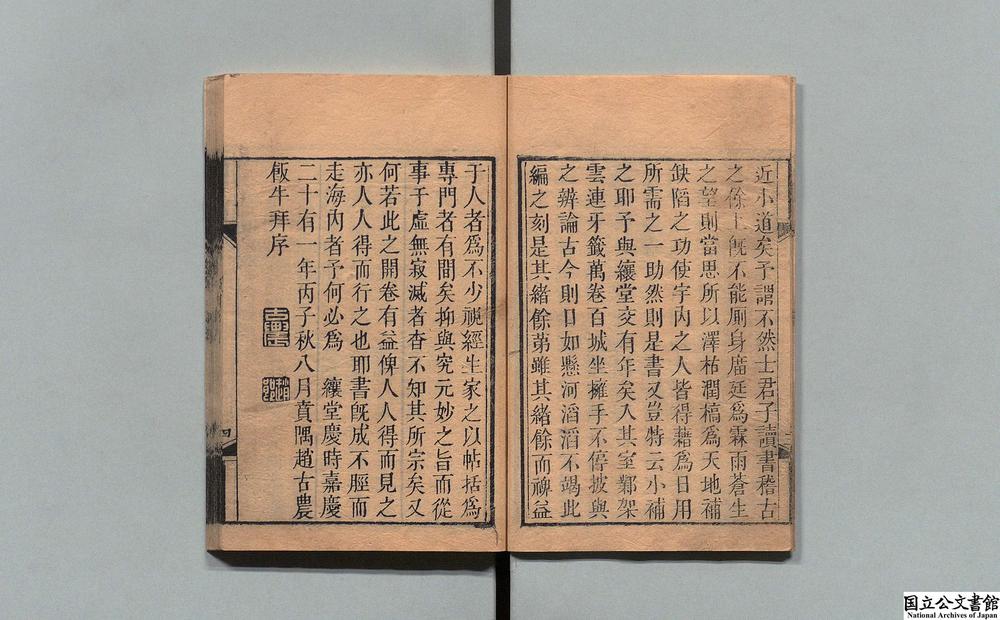 近小道矣予謂不然士君子讀書稽古
之餘上旣不能廁身廣廷爲霖雨蒼生
之望則當思所以澤枯潤槁爲天地補
缺陷之功使宇內之人皆得藉爲日用
所需之一助然則是書又豈特云小補
之耶予與纕堂交有年矣入其室鄴架
雲連牙籤萬卷百城坐擁手不停披與
之辨論古今則日如懸河滔滔不竭此
編之刻是其緒餘弟雖其緒餘而裨益
于人者爲不少視經生家之以帖括爲
專門者有間矣抑與究元妙之旨而從
事于虛無寂滅者杳不知其所宗矣又
何若此之開卷有益俾人人得而見之
亦人人得而行之也耶書旣成不脛而
走海內者予何必爲 纕堂慶時嘉慶
二十有一年丙子秋八月賁隅趙古農
飯牛拜序
四
国立公文書館
National Archives of Japan